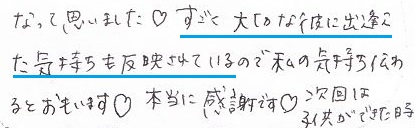 なって思いました♡ すごく大切な彼に出逢え
た気持ちも反映されているので私の気持ち伝わ
るとおもいます♡ 本当に感謝です♡ 次回は
子供ができた時